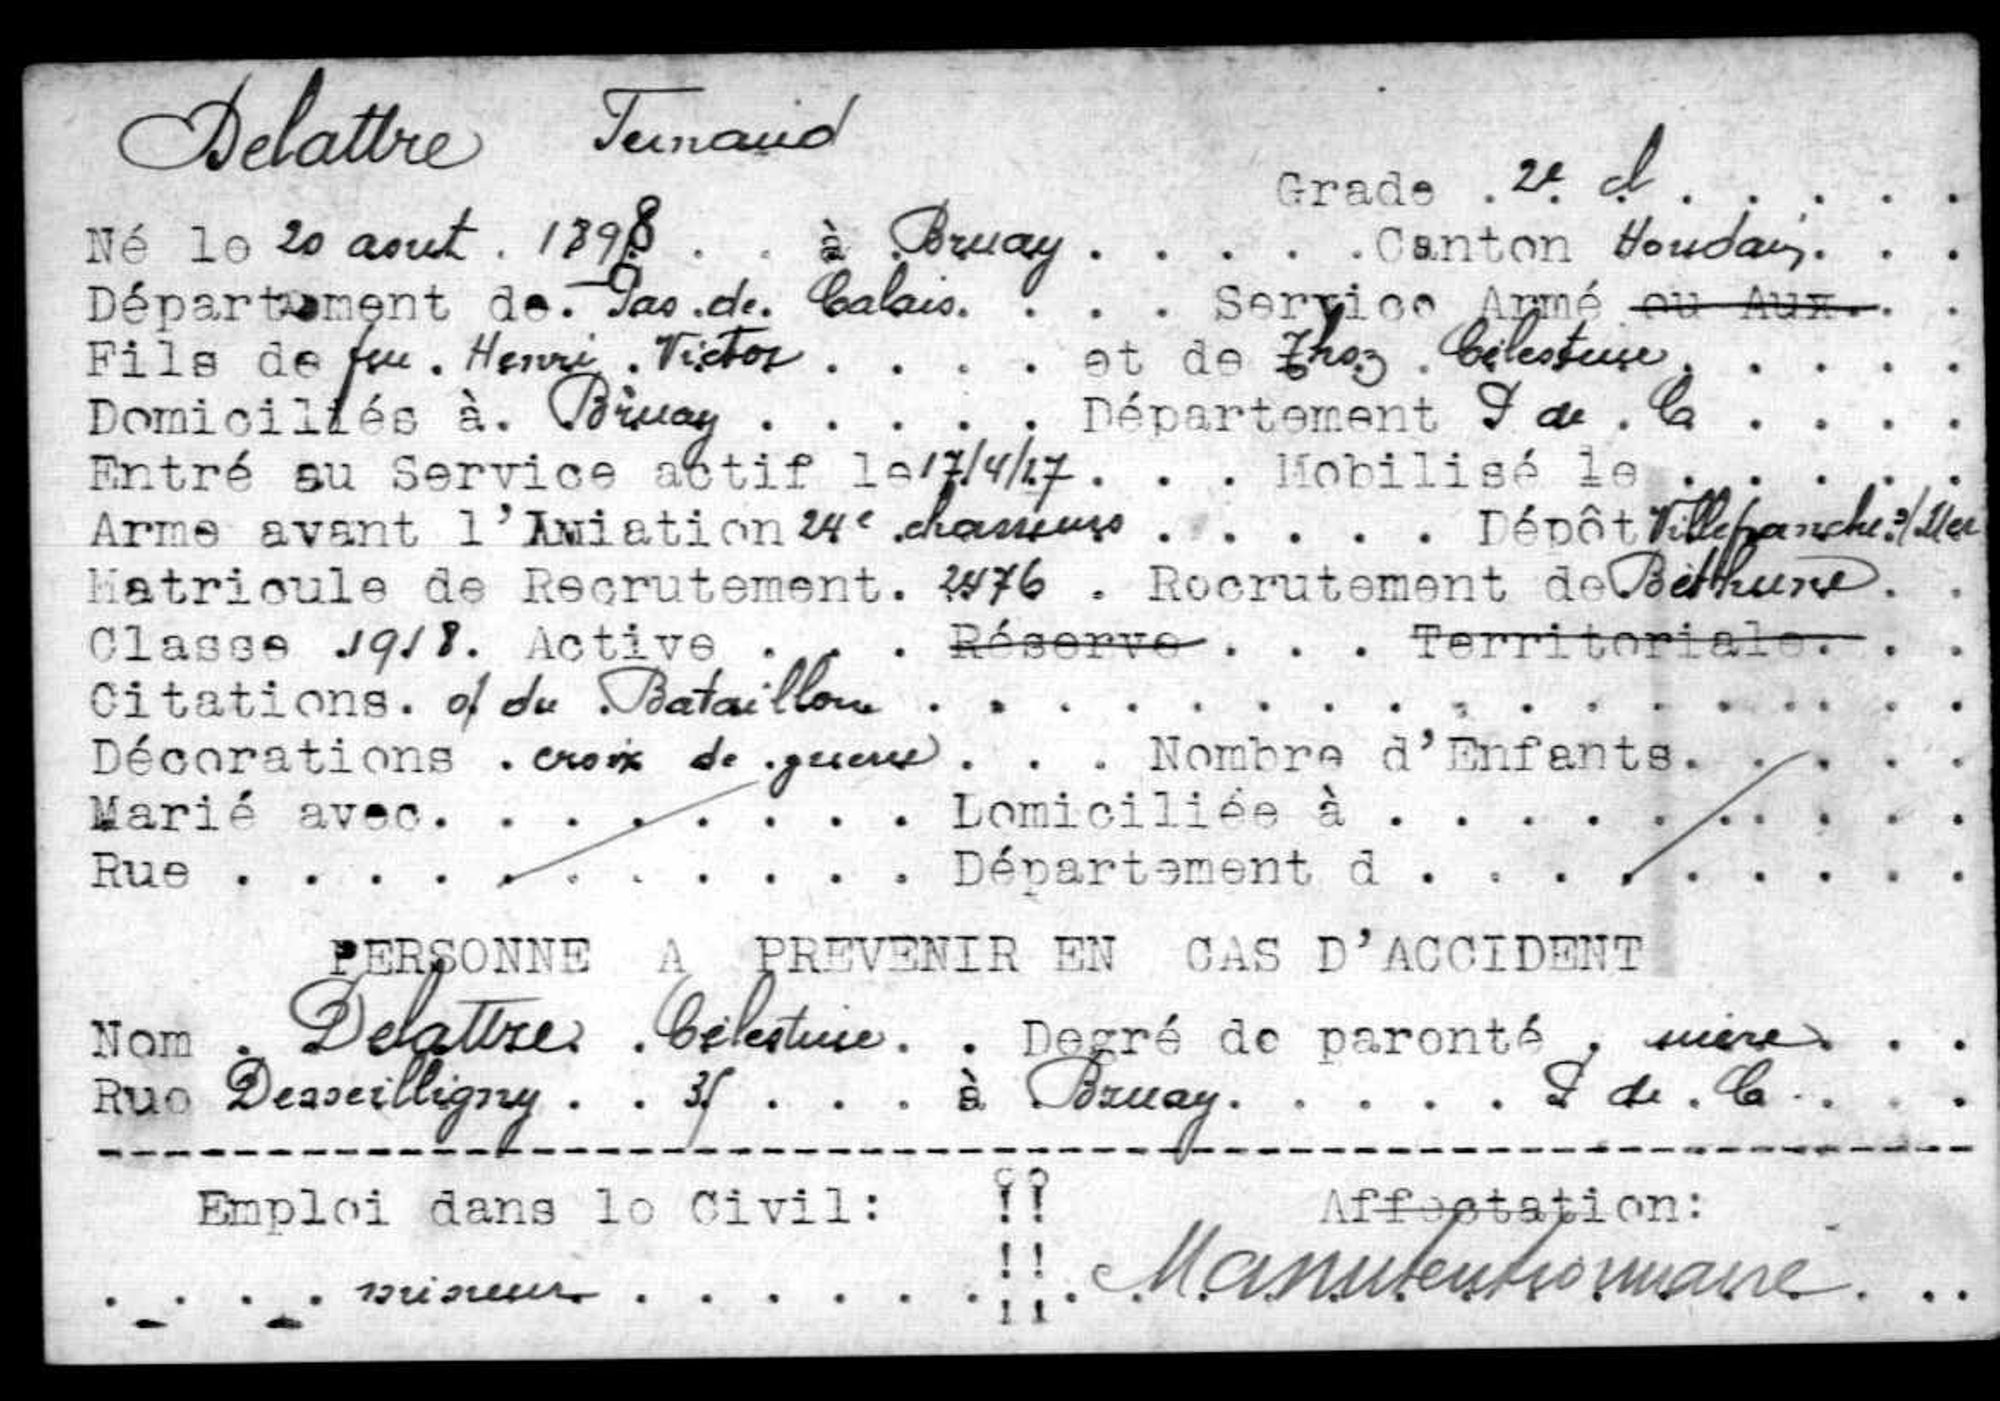 Delattre Fernand
Grade . 2e. cl . . . . .
Né le 20 aout . 1898 . . à Bruay . . . . . Canton Houdain. . .
Département de. Pas.de. Calais. . . . Service Armé ou Aux. . .
Fils de feu . Henri . Victor . . . . et de . Célestine . . . . .
Domiciliés à. Bruay . . . . . Département P de . C . . . .
Entré au Service actif le 17/4/17 . . . Mobilisé le . . . . .
Arme avant l'Aviation 24e .chasseurs . . . . . Dépôt Villefranche s/Mer
Matricule de Recrutement. 2476 . Recrutement de Béthune . .
Classe .1918. Active . . . Réserve . . . Territoriale. . .
Citations. o/ du . Bataillon . . . . . . . . . . . . . . . . . .
Décorations . croix de .guerre . . . Nombre d'Enfants. . . . . .
Marié avec. . . . . . . . . Domiciliée à . . . . . . . . . .
Rue . . . . . . . . . . . . Département d . . . . . . . . .
PERSONNE A PREVENIR EN CAS D'ACCIDENT
Nom . Delattre. . Célestine . . Degré de parenté . mère . . .
Rue Desseilligny . . . . . à Bruay. . . . . P de . C . . . .
Emploi dans le Civil: !! Affectation:
. . . . mineur . . . . . . !! Manutentionnaire . . .